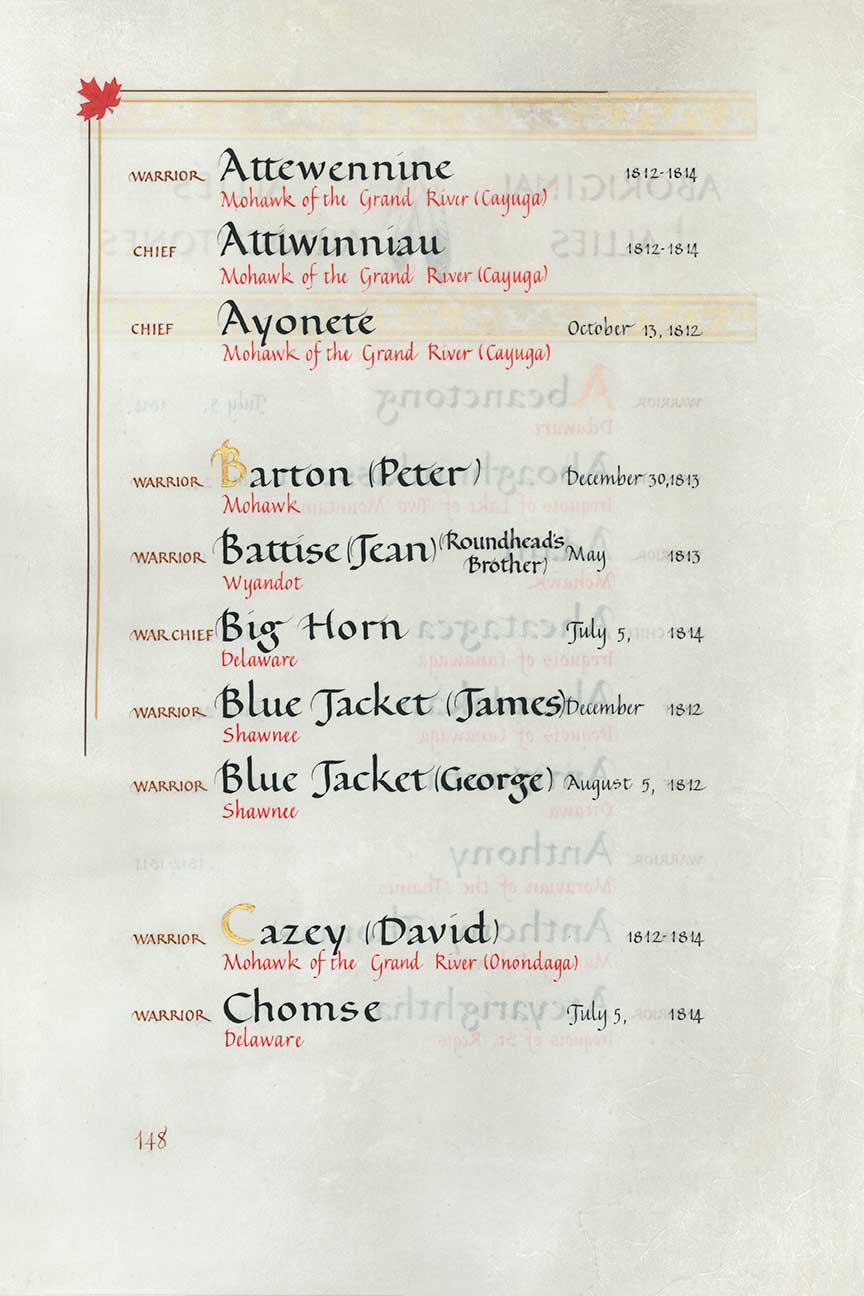 WARRIOR Attewennine 1812-1814
Mohawk of the Grand River (Cayuga)
CHIEF Attiwinniau 1812-1814
Mohawk of the Grand River (Cayuga)
CHIEF Ayonete October 13, 1812
Mohawk of the Grand River (Cayuga)
WARRIOR Barton (Peter) December 30, 1813
Mohawk
WARRIOR Battise (Jean) (Roundhead's Brother) May 1813
Wyandot
WAR CHIEF Big Horn July 5, 1814
Delaware
WARRIOR Blue Jacket (James) December 1812
Shawnee
WARRIOR Blue Jacket (George) August 5, 1812
Shawnee
WARRIOR Cazey (David) 1812-1814
Mohawk of the Grand River (Onondaga)
WARRIOR Chomse July 5, 1814
Delaware
148